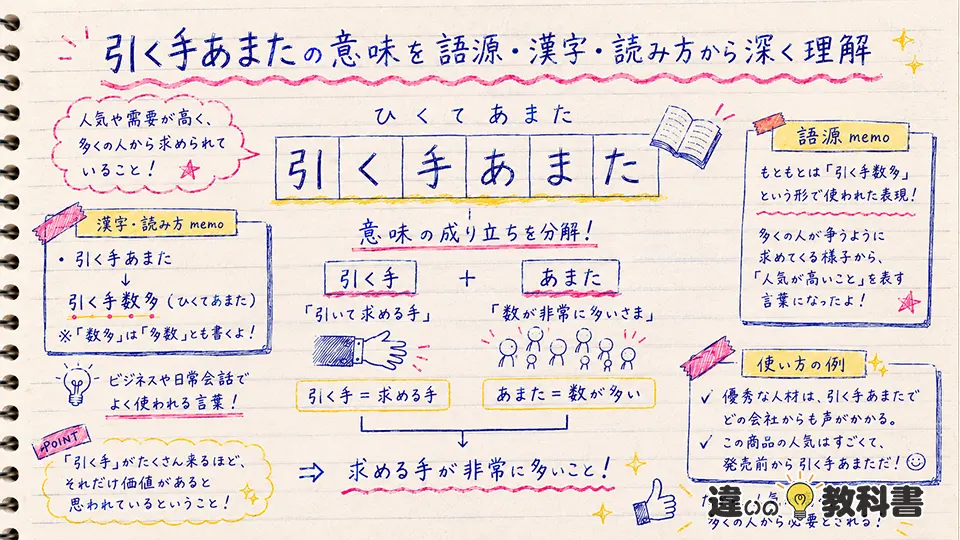 引く手あまたの意味を語源・漢字・読み方から深く理解
人気や需要が高く、
多くの人から求められて
いること！
ひくてあまた
引く手あまた
意味の成り立ちを分解！
引く手 + あまた
「引いて求める手」 「数が非常に多いさま」
引く手＝求める手 あまた＝数が多い
⇒ 求める手が非常に多いこと！
漢字・読み方 memo
・引く手あまた
↓
引く手数多（ひくてあまた）
※「数多」は「多数」とも書くよ！
ビジネスや日常会話で
よく使われる言葉！
POINT
「引く手」がたくさん来るほど、
それだけ価値があると
思われているということ！
語源 memo
もともとは「引く手数多」
という形で使われた表現！
多くの人が争うように
求めてくる様子から、
「人気が高いこと」を表す
言葉になったよ！
使い方の例
✓ 優秀な人材は、引く手あまたで
どの会社からも声がかかる。
✓ この商品の人気はすごくて、
発売前から引く手あまただ！
多くの人から必要とされる！
違いの教科書